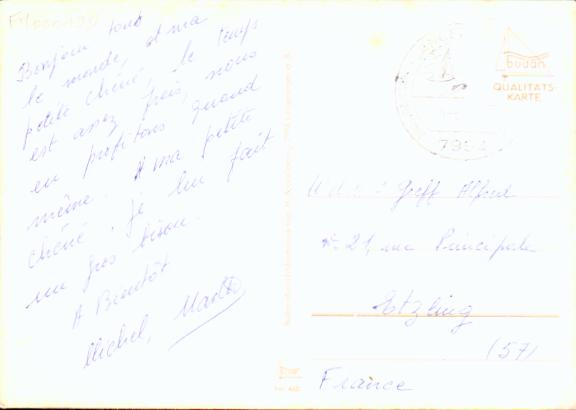 Bonjour tout
le monde, et ma
petite chérie, le temps
est assez frais, nous
en profitons quand
même. A ma petite
chérie, je lui fait
un gros bisou.
A Bientôt
Michel,
budan
QUALITÄTS-
KARTE
7994
Geoff Alfred
21, rue Principale
Etzling
(57)
France